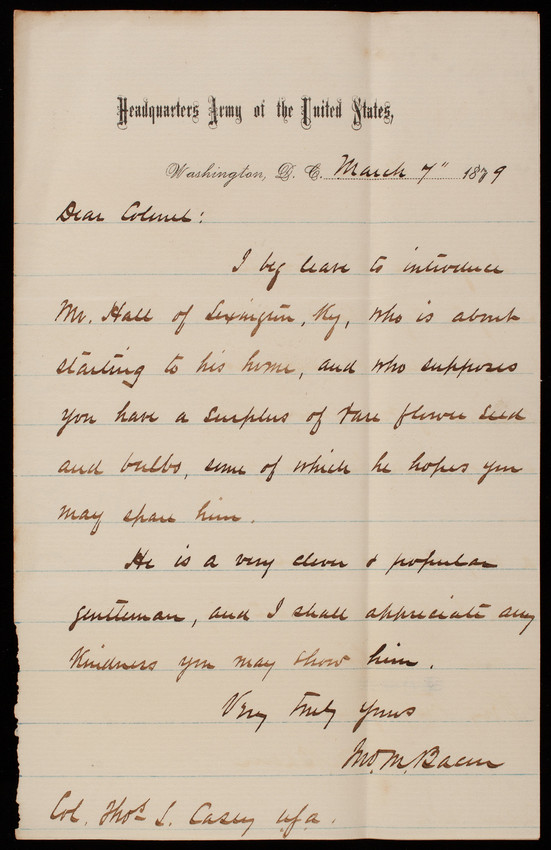 Headquarters Army of the United States,
Washington, D. C. March 7" 1879
Dear Colonel:
I beg leave to introduce
Mr. Hall of Lexington, Ky, who is about
starting to his home, and who supposes
you have a surplus of rare flower seed
and bulbs, some of which he hopes you
may spare him.
He is a very clever & popular
gentleman, and I shall appreciate any
kindness you may show him.
Very truly yours
Jno. M. Bacon
Col. Thos. L. Casey